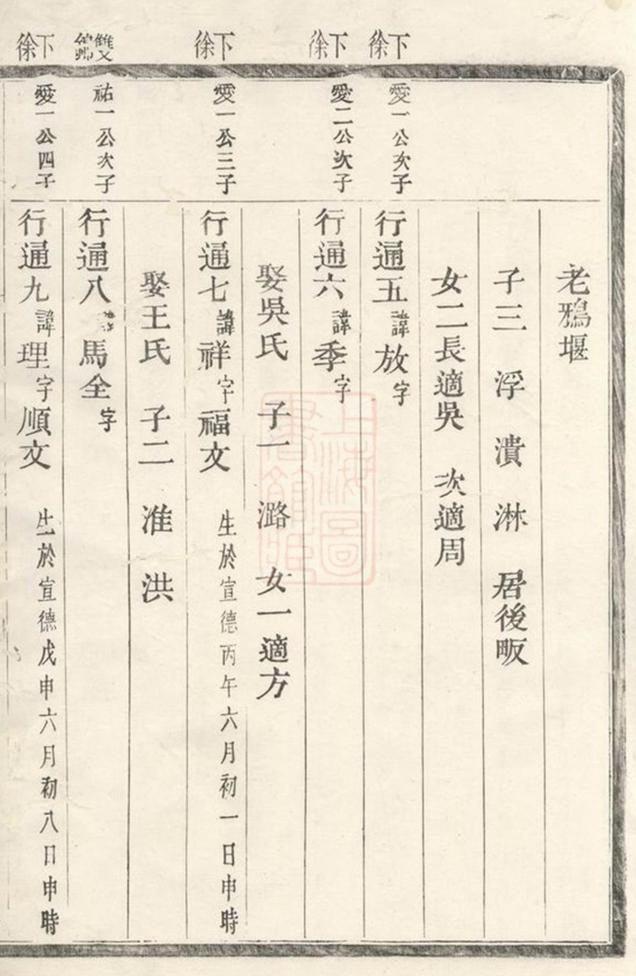 老鴉堰
子三 浮 瀆 淋 居後畈
女二長適吳 次適周
下徐
愛一公次子
行通五諱放字
下徐
愛二公次子
行通六諱季字
娶吳氏 子一 潞 女一適方
下徐
愛一公三子
行通七諱祥字福文 生於宣德丙午六月初一日申時
娶王氏 子二 准 洪
祐一公次子
行通八諱馬全字
下徐
愛一公四子
行通九諱理字順文 生於宣德戊申六月初八日申時
上海圖書館藏